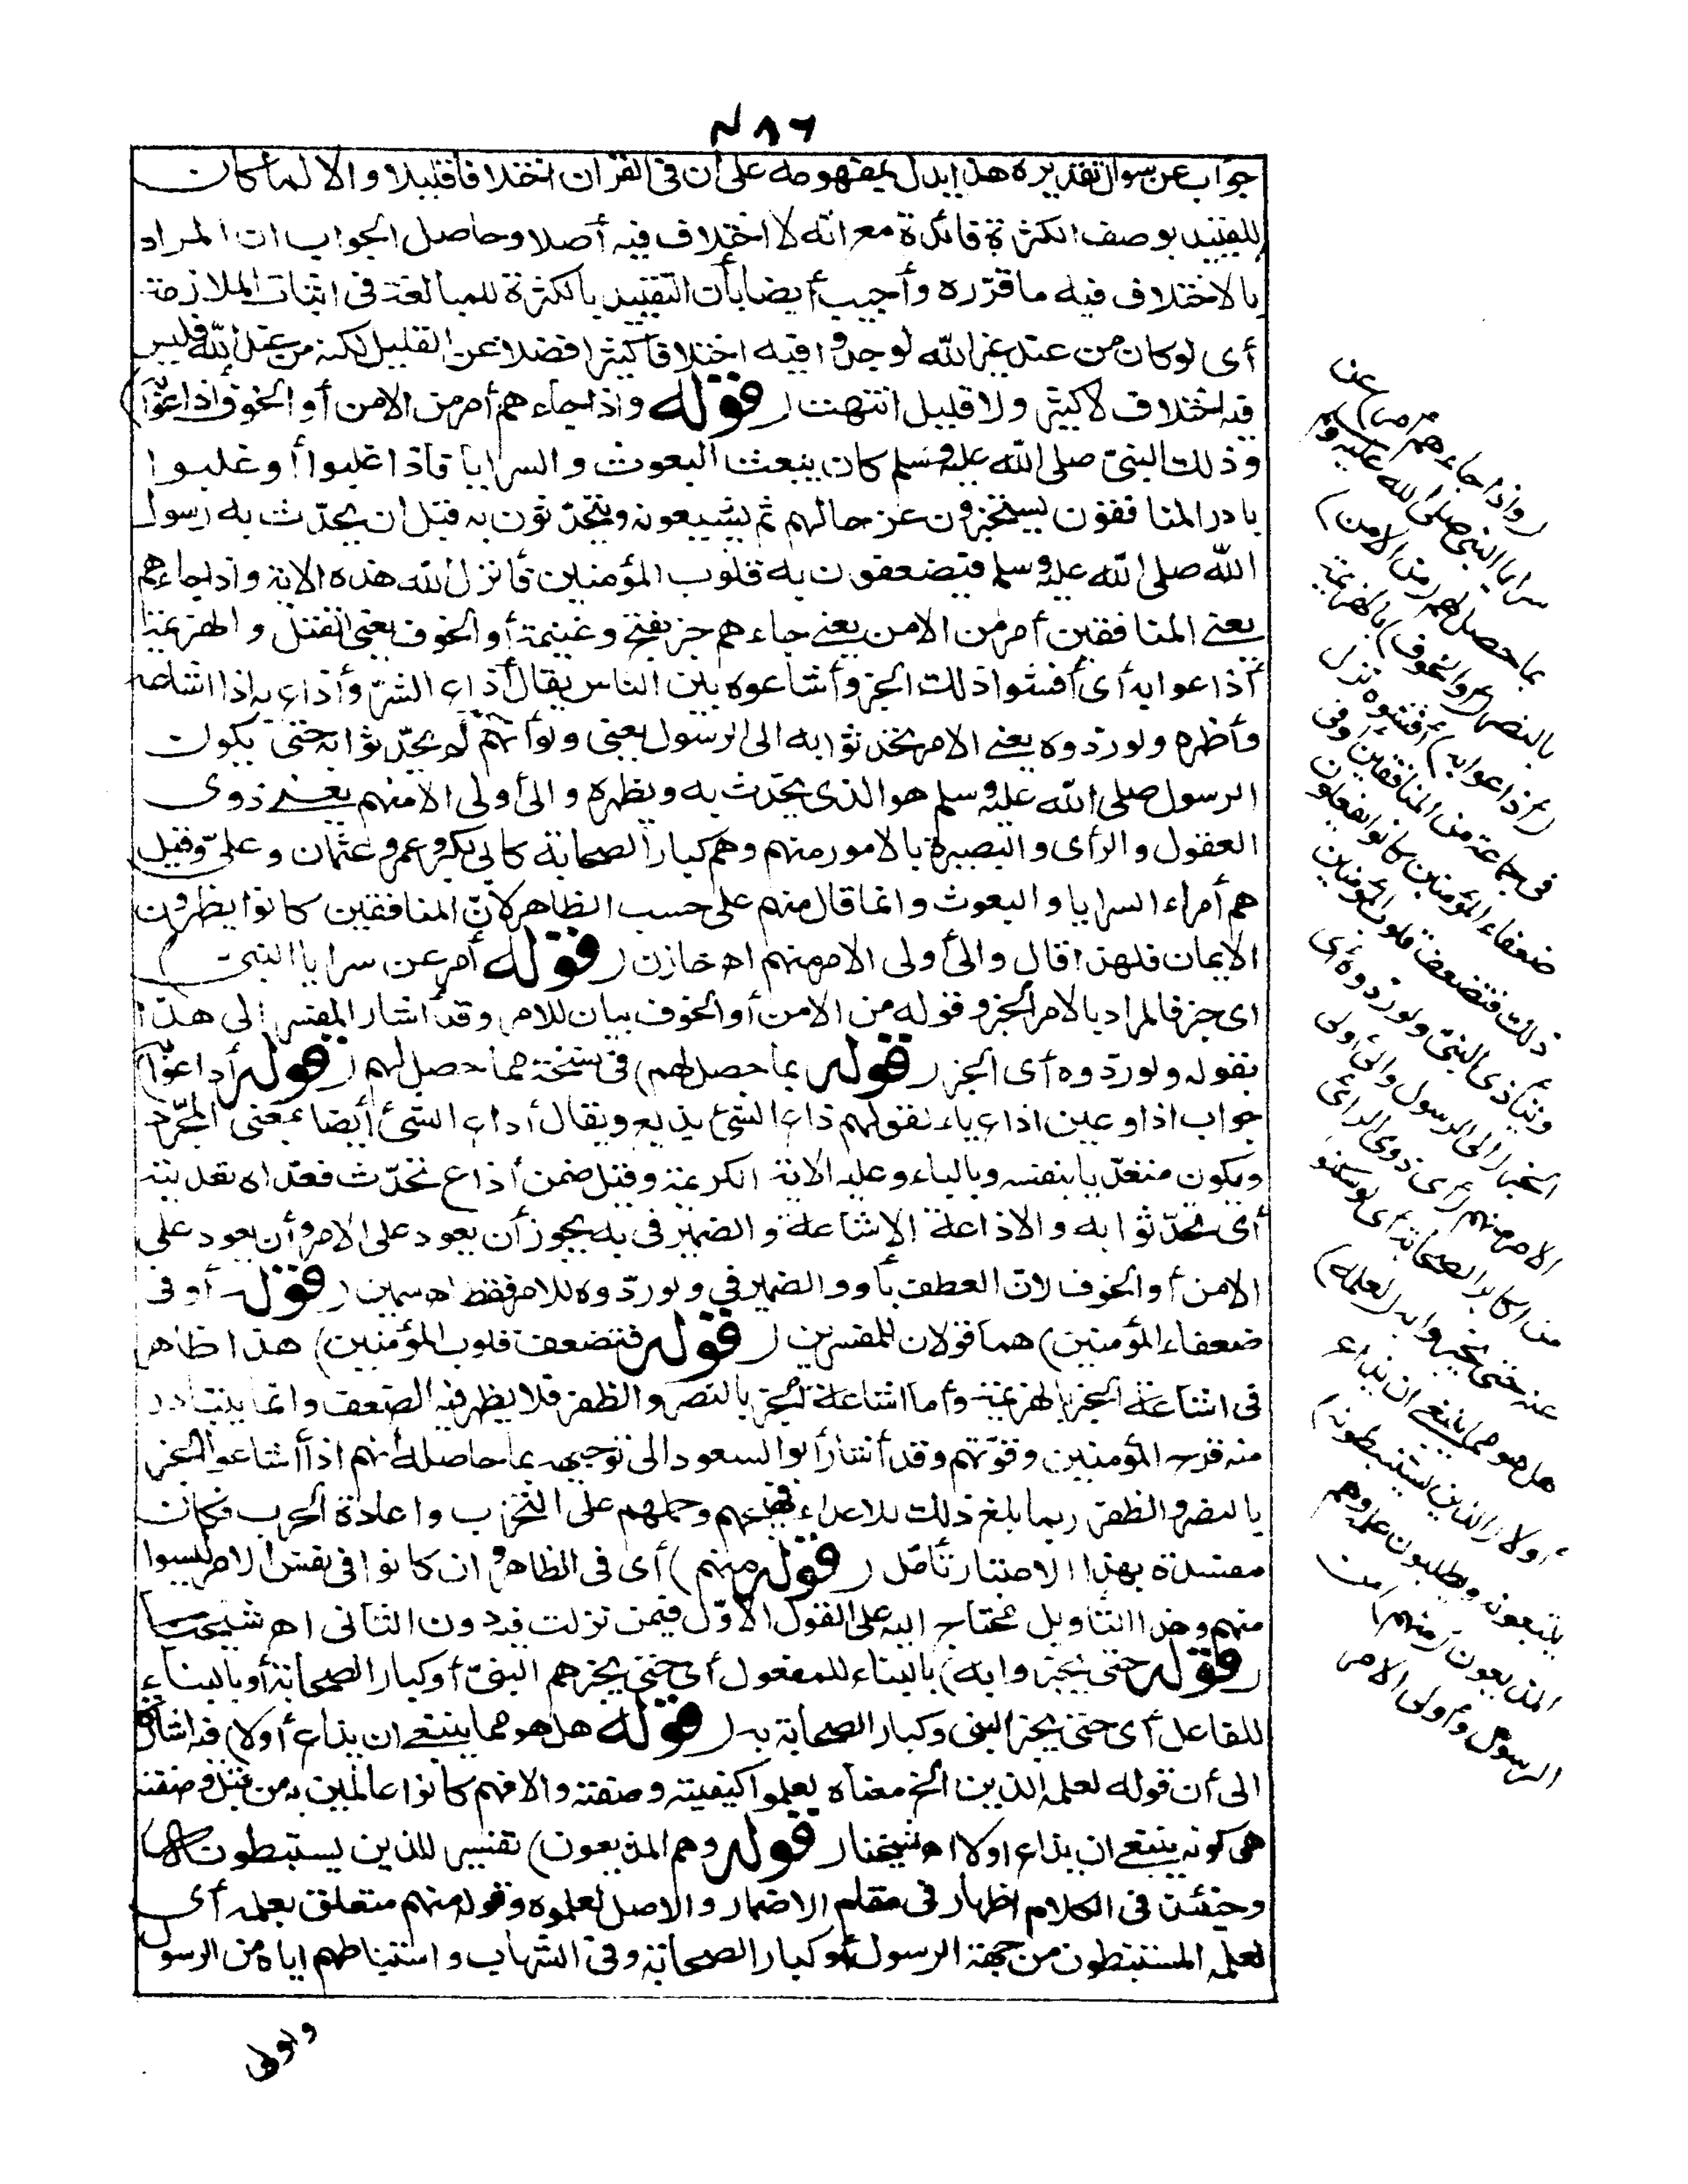 جواب عن سوال تقديره هذا يدل بمفهومه على أن فى القران اختلافا قليلا والا لما كان
للتقييد بوصف الكثرة فائدة مع انه لا اختلاف فيه أصلا وحاصل الجواب ان المراد
بالاختلاف فيه ما قرّره وأجيب أيضا بأن التقييد بالكثرة للمبالغة فى اثبات الملازمة
أى لو كان من عند غير الله لوجدوا فيه اختلافا كثيرا فضلا عن القليل لكنه من عند الله فليس
فيه اختلاف لا كثير ولا قليل انتهت (قوله واذا جاءهم أمر من الامن أو الخوف أذاعوا)
وذلك النبىّ صلى الله عليه وسلم كان يبعث البعوث والسرايا فاذا غلبوا أو غلبوا
بادر المنافقون يستخبرون عن حالهم ثم يشيعونه ويتحدّثون به قبل ان يحدّث به رسول
الله صلى الله عليه وسلم فيضعفون به قلوب المؤمنين فأنزل الله هذه الاية واذا جاءهم
يعنى المنافقين أمر من الامن يعنى جاءهم خبر بفتح وغنيمة أو الخوف يعنى القتل والهزيمة
أذاعوا به أى أفشوا ذلك الخبر وأشاعوه بين الناس يقال أذاع السّر وأذاع به اذا اشاعه
وأظهره ولو ردّوه يعنى الامر تحدثوا به الى الرسول يعنى ولو أنهم لم يحدّثوا به حتى يكون
الرسول صلى الله عليه وسلم هو الذى يحدّث به ويظهره والى أولى الامر منهم يعنى ذوى
العقول والرأى والبصيرة بالامور منهم وهم كبار الصحابة كابى بكر وعمر وعثمان وعلىّ وقيل
هم أمراء السرايا والبعوث وانما قال منهم على حسب الظاهر لانّ المنافقين كانوا يظهرون
الايمان فلهذا قال والى أولى الامر منهم اه خازن (قوله أمر عن سرايا النبى)
اى خبر فالمراد بالامر الخبر وقوله من الامن أو الخوف بيان للامر وقد أشار المفسر الى هذا
بقوله ولو ردّوه أى الخبر (قوله بما حصل لهم) فى نسخة مما حصل لهم (قوله أذاعوا)
جواب اذا وعين اذاع ياء لقولهم ذاع الشئ يذيع ويقال أذاع الشئ أيضا بمعنى المجرّد
ويكون متعدّيا بنفسه وبالباء وعليه الاية الكريمة وقيل ضمن أذاع تحدّث فعدّاه تعديته
أى تحدّثوا به والاذاعة الاشاعة والضمير فى به يجوز أن يعود على الامر وأن يعود على
الامن أو الخوف لانّ العطف بأو والضمير فى ولو ردّوه للامر فقط اه سمين (قوله أو فى
ضعفاء المؤمنين) هما قولان للمفسرين (قوله فتضعف قلوب المؤمنين) هذا ظاهر
فى اشاعة الخبر بالهزيمة وأما اشاعة الخبر بالنصر والظفر فلا يظهر فيه الضعف وانما يتبادر
منه فرح المؤمنين وقوّتهم وقد أشار أبو السعود الى توجيهه بما حاصله أنهم اذا أشاعوا الخبر
بالنصر والظفر ربما بلغ ذلك للاعداء وحملهم على التحزب واعادة الحرب فكان
مفسدة بهذا الاعتبار تأمّل (قوله منهم) أى فى الظاهر وان كانوا فى نفس الامر ليسوا
منهم وهذا التأويل محتاج اليه على القول الاوّل فيمن نزلت فيه دون الثانى اه شيخنا
(قوله حتى يخبروا به) بالبناء للمفعول أى حتى يخبرهم النبىّ أو كبار الصحابة أو بالبناء
للفاعل أى حتى يخبر النبى وكبار الصحابة به (قوله هل هو مما ينبغى ان يذاع أولا) فد اشارة
الى أن قوله لعلمه الذين الخ معناه لعلموا كيفيته وصفته والا فهم كانوا عالمين به من قبل وصفته
هى كونه ينبغى ان يذاع اولا اه شيخنا (قوله وهم المذيعون) تفسير للذين يستنبطون
وحينئذ فى الكلام اظهار فى مقام الاضمار والاصل لعلموه وقوله منهم متعلق بعلمه أى
لعلمه المستنبطون من جهة الرسول أو كبار الصحابة وفى الشهاب واستنباطهم اياه من الرسول
(واذا جاءهم أمر) عن
سرايا النبى صلى الله عليه وسلم
بما حصل لهم (من الامن)
بالنصر (أو الخوف) بالهزيمة
(أذاعوا به) أفشوه نزل
فى جماعة من المنافقين أو فى
ضعفاء المؤمنين كانوا يفعلون
ذلك فتضعف قلوب المؤمنين
ويتأذى النبىّ ولو ردّوه أى
الخبر (الى الرسول والى أولى
الامر منهم) أى ذوى الرأى
من اكابر الصحابة أى لو سكتوا
عنه حتى يخبروا به (لعلمه)
هل هو مما ينبغى ان يذاع
أولا (الذين يستنبطونه)
يتبعونه ويطلبون علمه وهم
المذيعون (منهم) من
الرسول وأولى الامر